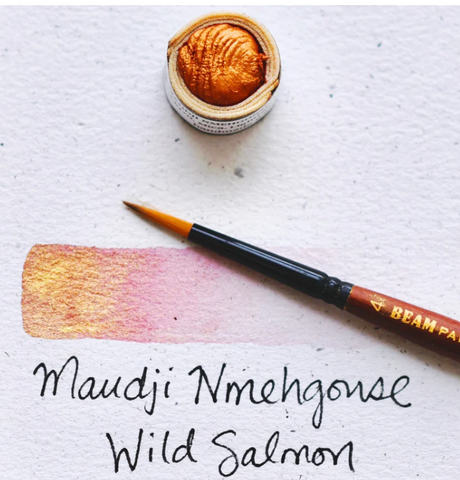 4
BEAM PA
Maudji Nmehgouse
Wild Salmon